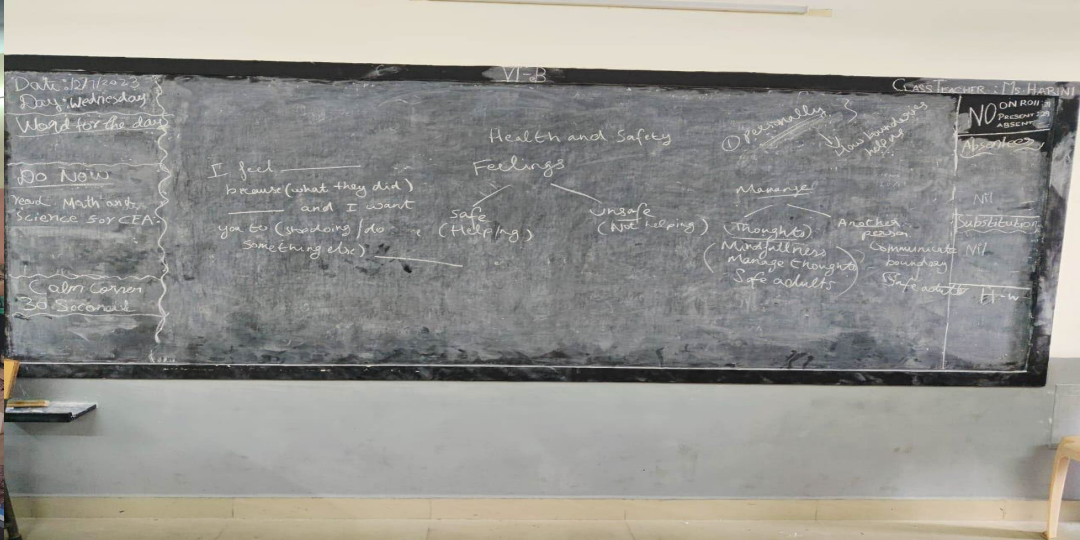 VI-B
CLASS TEACHER : MS. HARINI
Date: 12/7/2023
Day: Wednesday
Word for the day
Do Now
read Math and
Science for CEA
Calm Corner
30 Seconds
I feel
because (what they did)
and I want
you to (stop doing / do
something else)
Health and Safety
Feelings
safe
(Helping)
unsafe
(Not helping)
① personally
How boundaries
helps
Manange
(Thoughts)
Mindfullness
Manage thoughts
Safe adults
Another
person
Communicate
boundary
Safe adults
NO
ON ROLL :
PRESENT :
ABSENT :
Absentees
Nil
Substitution
Nil
H.W